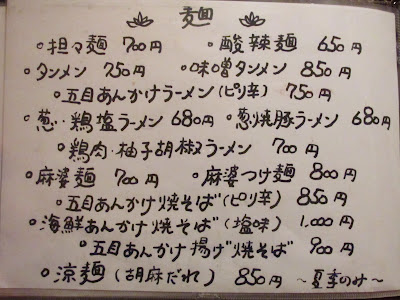 麺
・担々麺 700円 ・酸辣麺 650円
・タンメン 750円 ・味噌タンメン 850円
・五目あんかけラーメン(ピリ辛) 750円
・葱・鶏塩ラーメン 680円 ・葱焼豚ラーメン 680円
・鶏肉・柚子胡椒ラーメン 700円
・麻婆麺 700円 ・麻婆つけ麺 800円
・五目あんかけ焼そば(ピリ辛) 850円
・海鮮あんかけ焼そば(塩味) 1,000円
・五目あんかけ揚げ焼そば 900円
・涼麺(胡麻だれ) 850円 〜夏季のみ〜